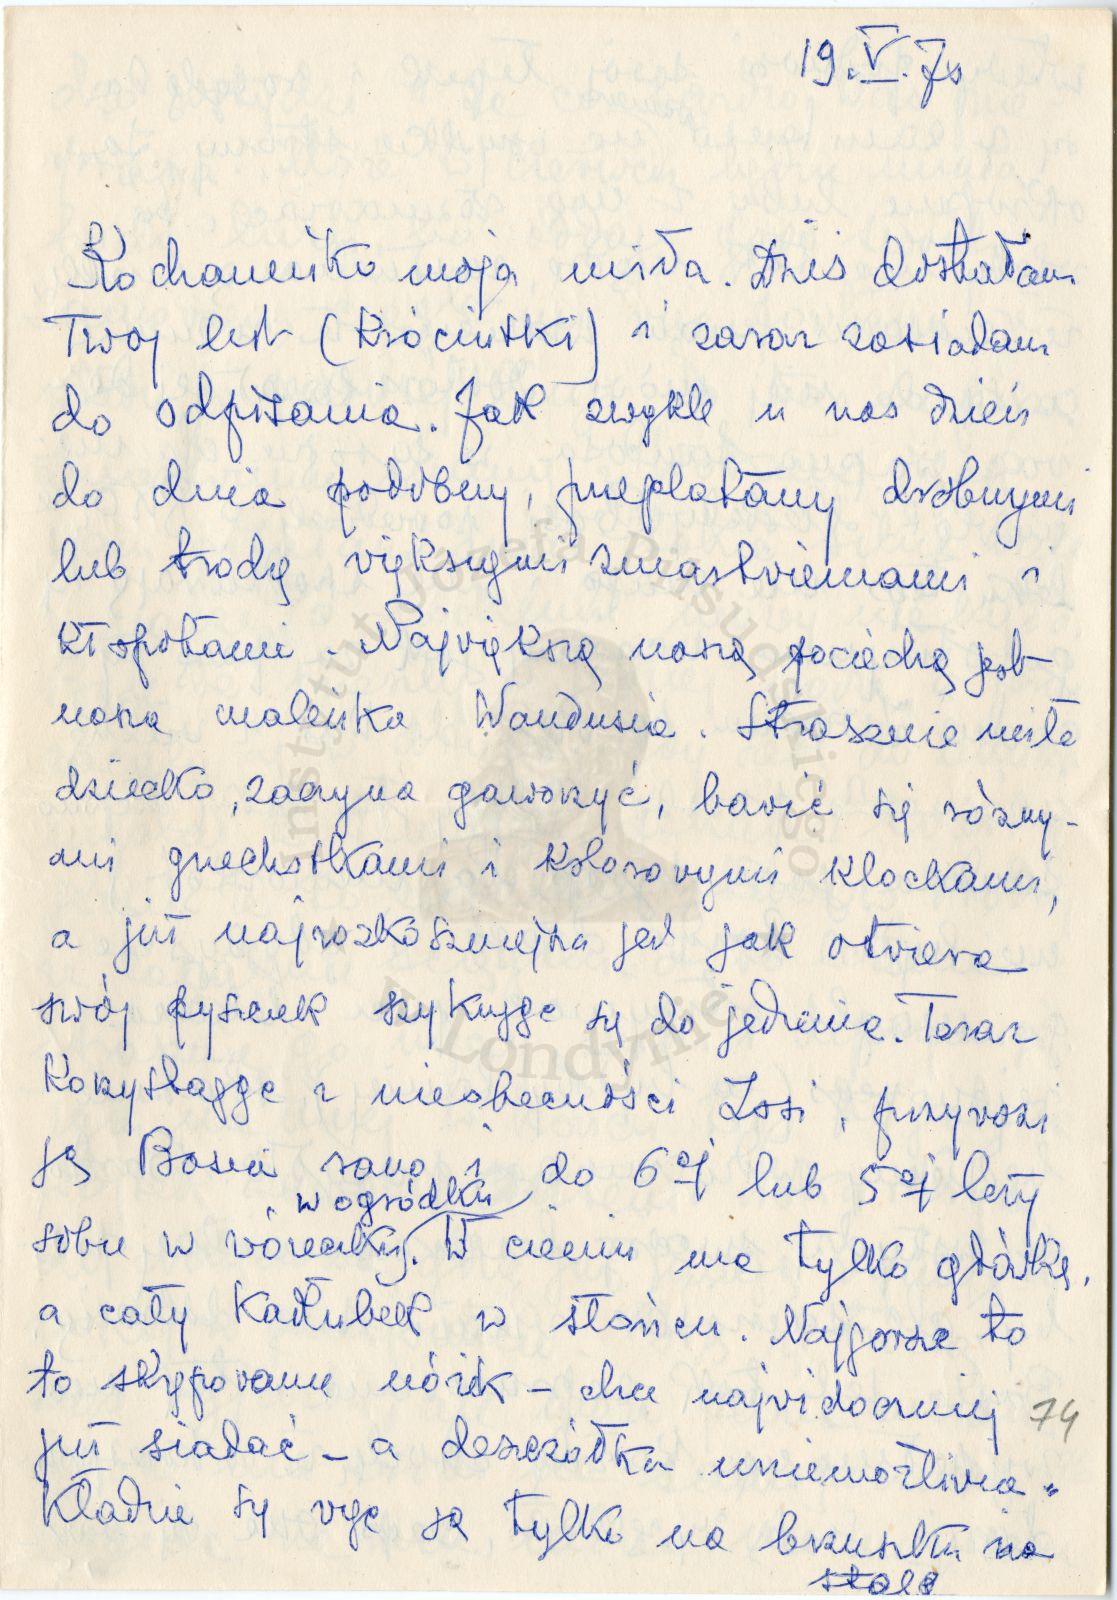 19.V.70
Kochaneńko moja miła. Dziś dostałam
Twój list (króciutki) i zaraz zasiadam
do odpisania. Jak zwykle u nas dzień
do dnia podobny, przeplatany drobnymi
lub trochę większymi zmartwieniami i
kłopotami. Największą naszą pociechą jest
nasza maleńka Wandusia. Strasznie miłe
dziecko, zaczyna gaworzyć, bawić się różny-
mi grzechotkami i kolorowymi klockami,
a już najrozkoszniejsza jest jak otwiera
swój pyszczek szykując się do jedzenia. Teraz
korzystając z nieobecności Zosi, przywozi
ją Basia rano i do 6ej lub 5ej leży
w ogródku
sobie w wózeczku. W cieniu ma tylko główkę,
a cały kadłubek w słońcu. Najgorsze to
to skrępowanie nóżek – chce najwidoczniej
już siadać – a deszczółka uniemożliwia.
Kładzie się więc ją tylko na brzuszku na
stole
74
Instytut Józefa Piłsudskiego
w Londynie